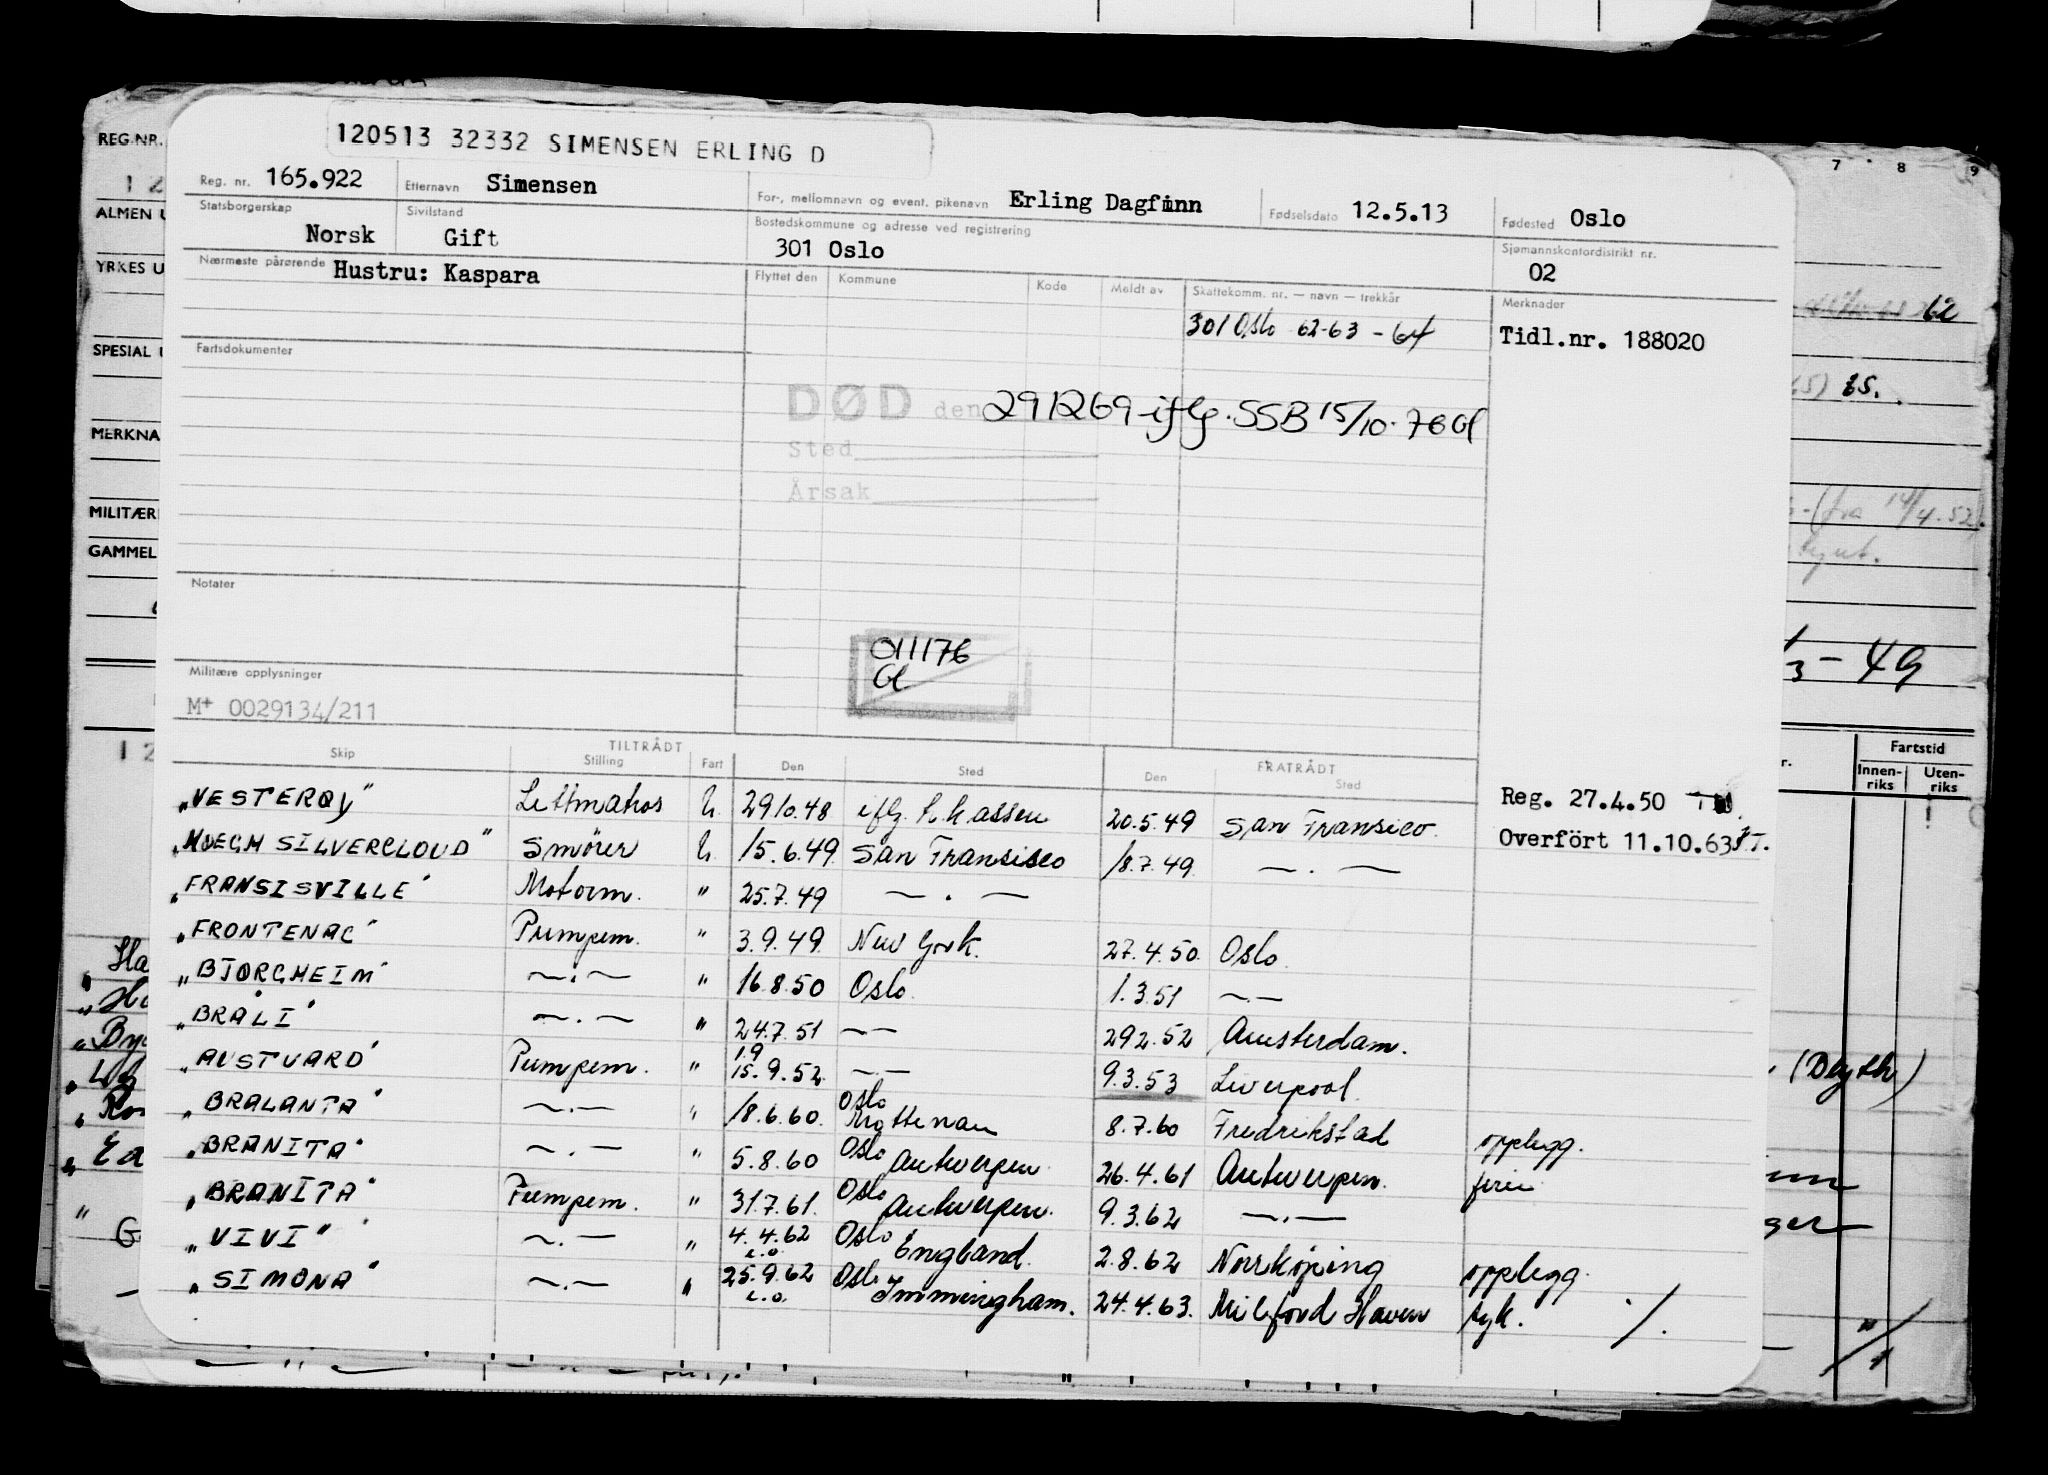 120513 32332 SIMENSEN ERLING D
Reg. nr. 165.922 Etternavn Simensen For-, mellomnavn og event. pikenavn Erling Dagfinn Fødselsdato 12.5.13 Fødested Oslo
Statsborgerskap Norsk Sivilstand Gift Bostedskommune og adresse ved registrering 301 Oslo Sjømannskontordistrikt nr. 02
Nærmeste pårørende Hustru: Kaspara Flyttet den Kommune Kode Meldt av Skattekomm. nr. — navn — trekkår Merknader
301 Oslo 62-63 - 64 Tidl.nr. 188020
Fartsdokumenter
DØD den 291269 iflg. SSB 15/10-76 Gl
Sted
Årsak
Notater
011176
Gl
Militære opplysninger
M+ 0029134/211
TILTRÅDT FRATRÅDT
Skip Stilling Fart Den Sted Den Sted
"VESTERØY" Lettmatros U. 29 10.48 iflg. h.kassen 20.5.49 San Fransico. Reg. 27.4.50
"MOEGH SILVERCLOUD" Smører U. 15.6.49 San Fransisco 18.7.49 — . — Overført 11.10.63
"FRANSISVILLE" Motorm. " 25.7.49 — . —
"FRONTENAC" Pumpem. " 3.9.49 New York. 27.4.50 Oslo.
"BJORGHEIM" — . — " 16.8.50 Oslo. 1.3.51 — . —
"BRÅLI" — . — " 24.7.51 — . — 29 2.52 Amsterdam.
"AUSTVARD" Pumpem. " 1.9 15.9.52 — . — 9.3.53 Liverpool.
"BRALANTA" — . — " 18.6.60 Oslo 8.7.60 Fredrikstad opplegg.
"BRANITA" — . — " 5.8.60 Oslo Antwerpen 26.4.61 Antwerpen. ferie
"BRANITA" Pumpem. " 31.7.61. Oslo Antwerpen. 9.3.62 — . —
"VIVI" — . — " 4.4.62 Oslo England. 2.8.62 Norrköping opplegg.
"SIMONA" — . — " 25.9.62 Oslo Immingham. 24.4.63. Milford Haven syk. ./.
REG.NR.
ALMEN U
YRKES U
SPESIAL U
MERKNA
MILITÆR
GAMMEL
7 8 9
62
(fra 14/4.52)
3 - 49
Fartstid
Innen-riks Uten-riks
(Blyth)